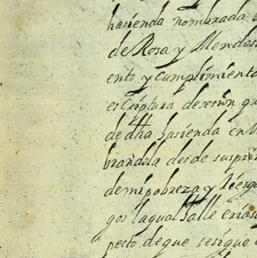 hasienda nombrada
de Rosa y Mendos
ento y cumplimiento
escriptura desesion qu
de dha hasienda en
brandola desde susprin
demipobreza y
gos laqual halle
pecto deque sesigue